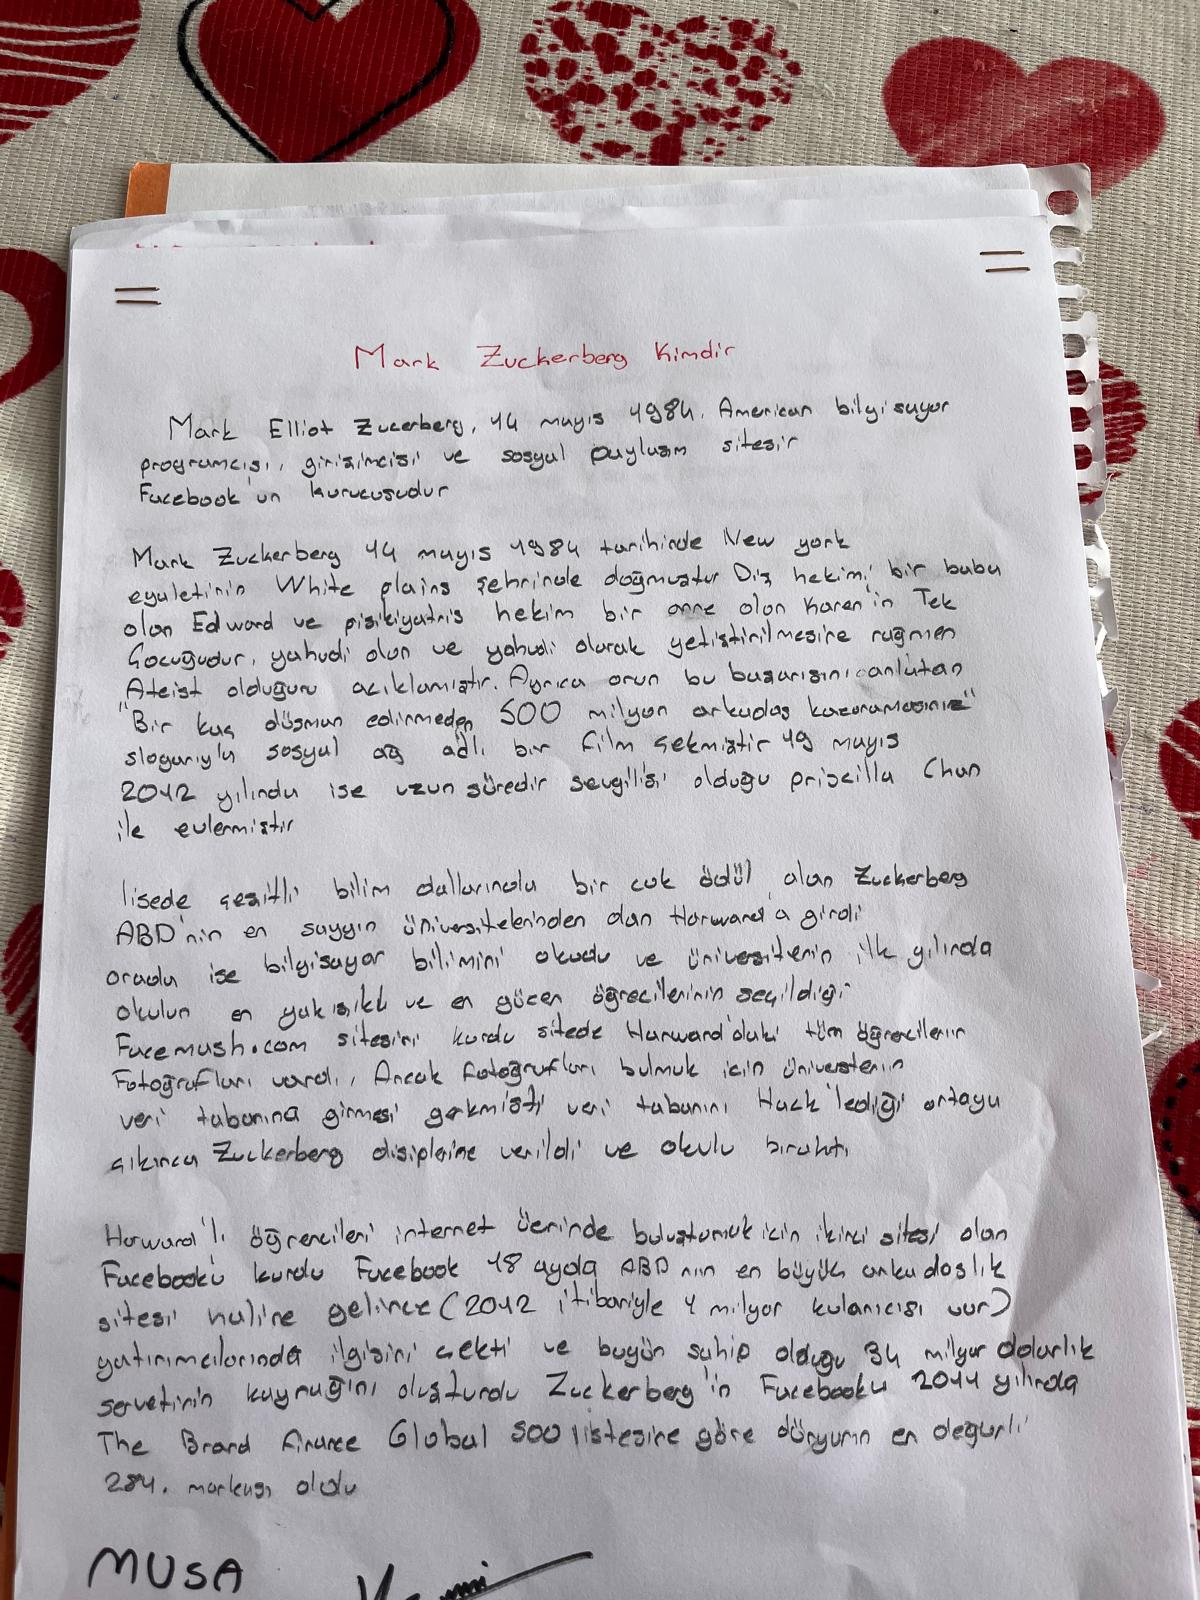 Mark Zuckerberg Kimdir
Mark Elliot Zucerberg, 14 mayıs 1984. American bilgisayar
programcısı, girişimcisi ve sosyal paylaşım sitesir
Facebook'un kurucusudur
Mark Zuckerberg 14 mayıs 1984 tarihinde New york
eyaletinin White plains şehrinde doğmuştur Diş hekimi bir baba
olan Edward ve pisikiyatris hekim bir anne olan Karen'in Tek
Çocuğudur, yahudi olan ve yahudi olarak yetiştirilmesine rağmen
Ateist olduğunu acıklamıştır. Ayrıca onun bu başarısını anlatan
"Bir kaç düşman edinmeden 500 milyon arkadaş kazanamasınız"
sloganıyla sosyal ağ adlı bir film çekmiştir 19 mayıs
2012 yılında ise uzun süredir sevgilisi olduğu priscilla Chan
ile evlenmiştir
lisede çeşitli bilim dallarında bir cok ödül alan Zuckerberg
ABD'nin en saygın üniversitelerinden olan Harward'a girdi
orada ise bilgisayar bilimini okudu ve üniversitenin ilk yılında
okulun en yakışıklı ve en güçen öğrecilerinin seçildiği
Facemash.com sitesini kurdu sitede Harward'daki tüm öğrencilerin
Fotoğrafları vardı, Ancak fotoğrafları bulmak icin üniverstenin
veri tabanına girmesi gerkmişti veri tabanını Hack'lediği ortaya
çıkınca Zuckerberg disipleine verildi ve okulu bıraktı
Harward'lı öğrencileri internet üzerinde buluşturmak icin ikinci sitesi olan
Facebooku kurdu Facebook 18 ayda ABD nin en büyük arkadaşlık
sitesi haline gelince (2012 itibariyle 1 milyar kulanıcısı var)
yatırımcılarında ilgisini çekti ve bugün sahip olduğu 34 milyar dolarlık
servetinin kaynağını oluşturdu Zuckerberg'in Facebooku 2011 yılında
The Brand finance Global 500 listesine göre dünyanın en değerli
284. markası oldu
MUSA